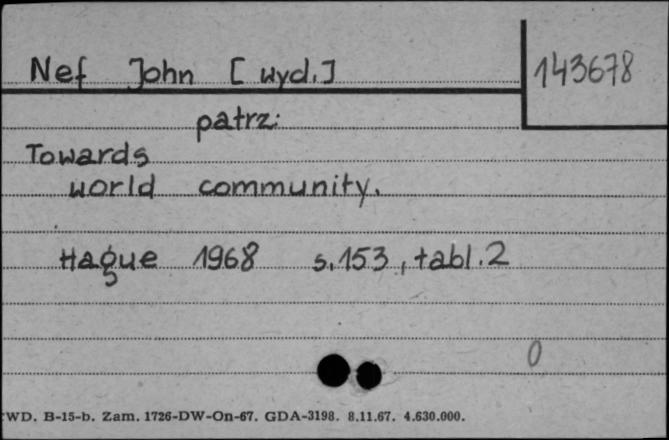 Nef John [wyd.]
143678
patrz:
Towards
world community.
Hague 1968 s.153, tabl.2
0
WD. B-15-b. Zam. 1726-DW-On-67. GDA-3198. 8.11.67. 4.630.000.